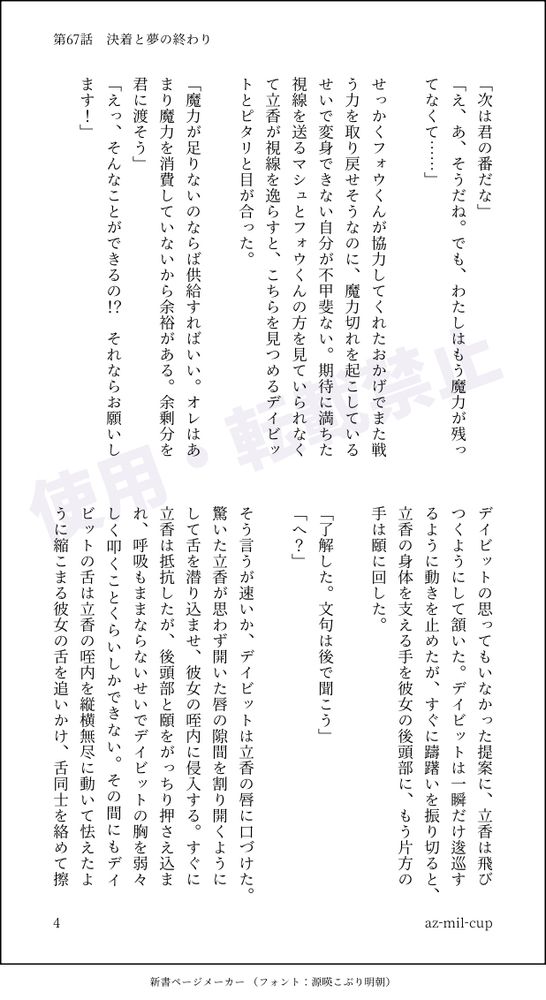 第67話　決着と夢の終わり
「次は君の番だな」
「え、あ、そうだね。でも、わたしはもう魔力が残っ
てなくて……」
せっかくフォウくんが協力してくれたおかげでまた戦
う力を取り戻せそうなのに、魔力切れを起こしている
せいで変身できない自分が不甲斐ない。期待に満ちた
視線を送るマシュとフォウくんの方を見ていられなく
て立香が視線を逸らすと、こちらを見つめるデイビッ
トとピタリと目が合った。
「魔力が足りないのならば供給すればいい。オレはあ
まり魔力を消費していないから余裕がある。余剰分を
君に渡そう」
「えっ、そんなことができるの!?　それならお願いし
ます！」
デイビットの思ってもいなかった提案に、立香は飛び
つくようにして頷いた。デイビットは一瞬だけ逡巡す
るように動きを止めたが、すぐに躊躇いを振り切ると、
立香の身体を支える手を彼女の後頭部に、もう片方の
手は頤に回した。
「了解した。文句は後で聞こう」
「へ？」
そう言うが速いか、デイビットは立香の唇に口づけた。
驚いた立香が思わず開いた唇の隙間を割り開くように
して舌を潜り込ませ、彼女の咥内に侵入する。すぐに
立香は抵抗したが、後頭部と頤をがっちり押さえ込ま
れ、呼吸もままならないせいでデイビットの胸を弱々
しく叩くことくらいしかできない。その間にもデイ
ビットの舌は立香の咥内を縦横無尽に動いて怯えたよ
うに縮こまる彼女の舌を追いかけ、舌同士を絡めて擦
4
az-mil-cup
使用・転載禁止
新書ページメーカー（フォント：源暎こぶり明朝）